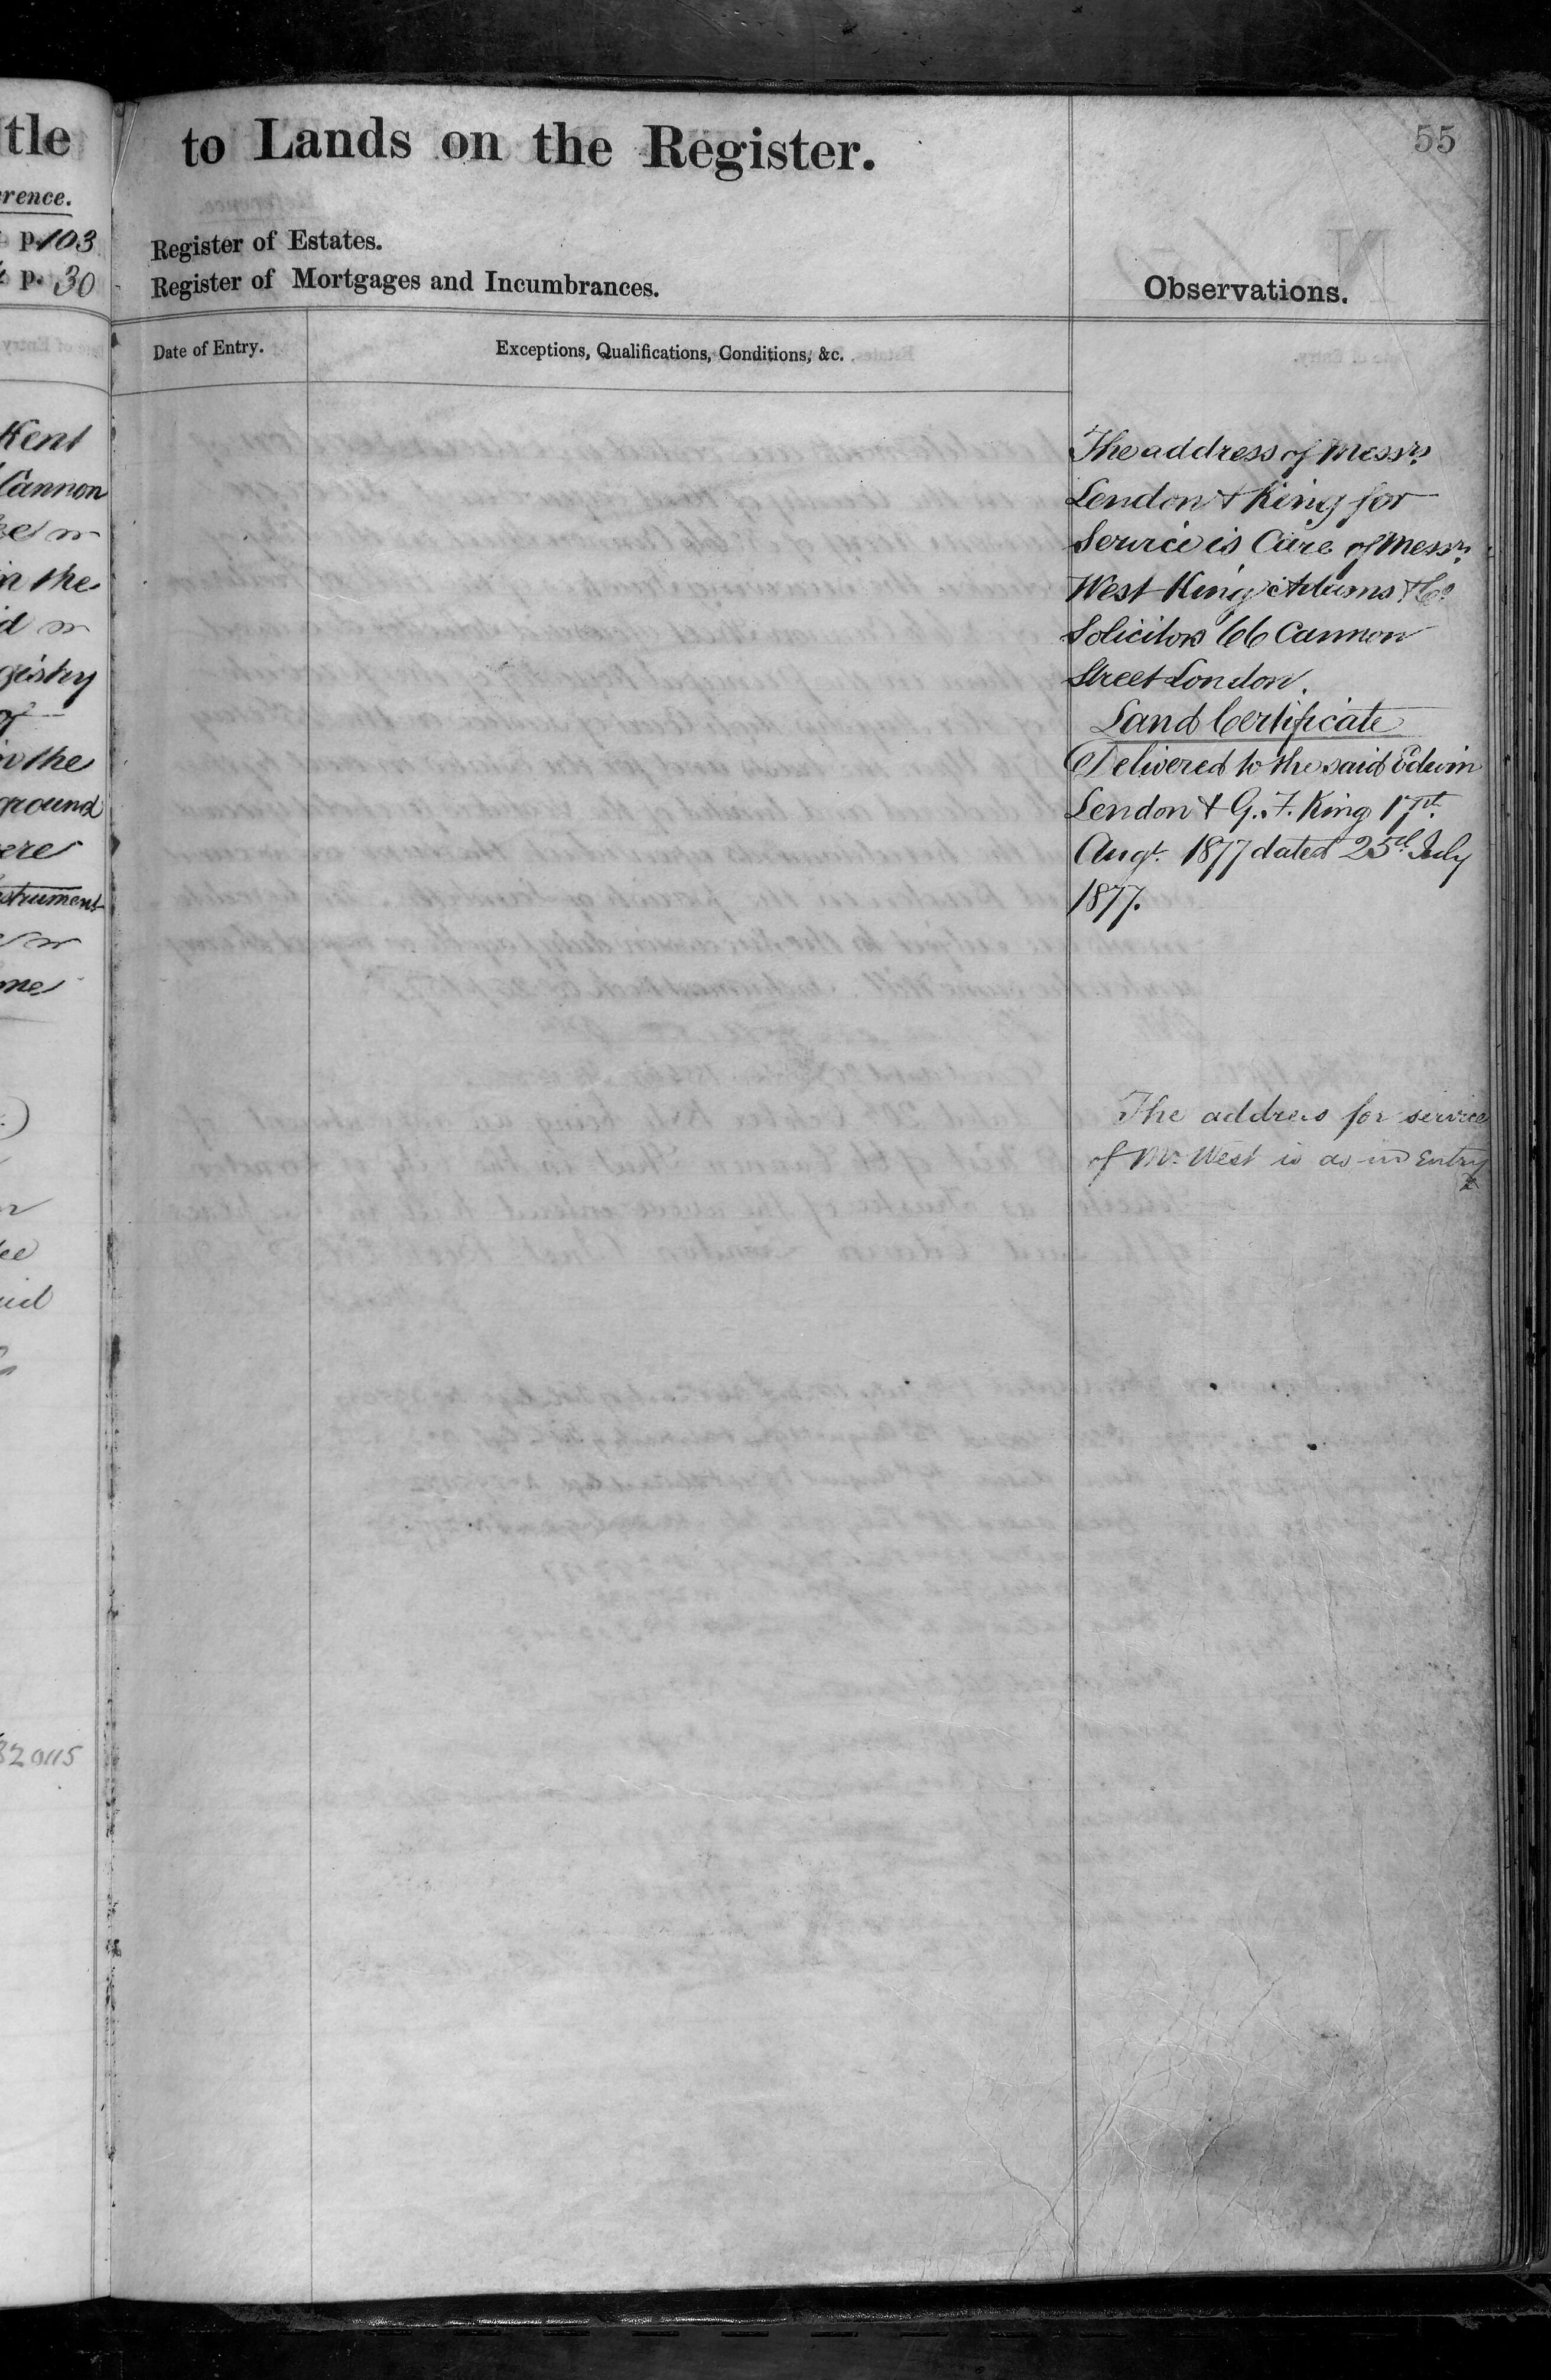 tle
rence.
p. 103
p. 30
Kent
Cannon
in the
gistry
of
in the
ground
ere
strument
me
32 0115
to Lands on the Register.
55
Register of Estates.
Register of Mortgages and Incumbrances.
Observations.
Date of Entry.
Exceptions, Qualifications, Conditions, &c.
The address of Messrs
Lendon & King for
Service is Care of Messrs
West King Adams & Co
Solicitors 66 Cannon
Street London.
Land Certificate
Delivered to the said Edwin
Lendon & G. F. King 17th
Augt. 1877 dated 25th July
1877.
The address for service
of Mr West is as in Entry